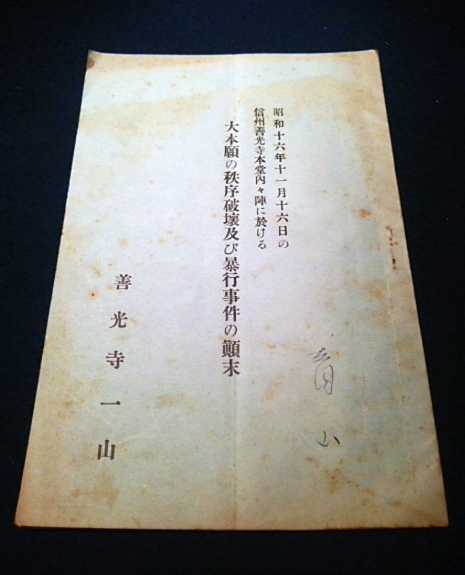 昭和十六年十一月十六日の
信州善光寺本堂內々陣に於ける
大本願の秩序破壞及び暴行事件の顚末
善光寺一山